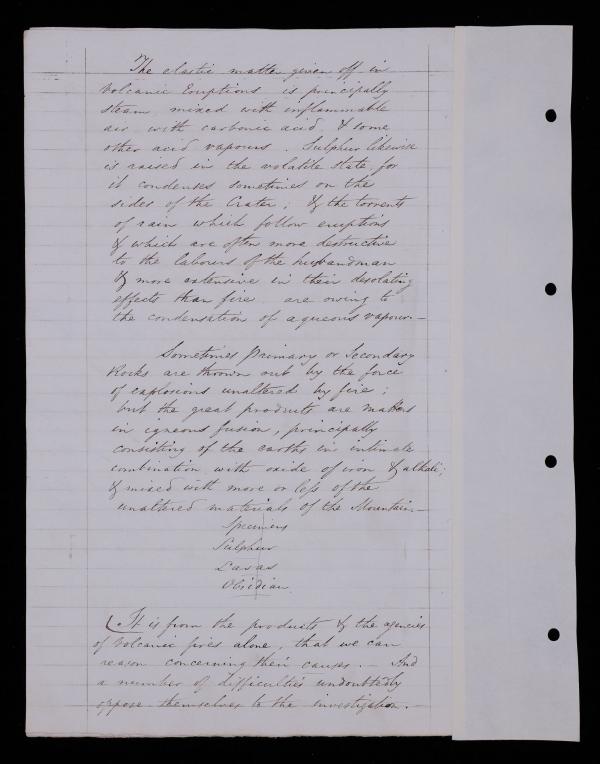 The elastic matter given off in
Volcanic Eruptions is principally
steam mixed with inflammable
air with carbonic acid & some
other acid vapours. Sulphur likewise
is raised in the volatile state, for
it condenses sometimes on the
sides of the Crater; & the torrents
of rain which follow eruptions
& which are often more destructive
to the labours of the husbandman
& more extensive in their desolating
effects than fire are owing to
the condensation of aqueous vapour.—
Sometimes Primary or Secondary
Rocks are thrown out by the force
of explosions unaltered by fire;
but the great products are matters
in igneous fusion, principally
consisting of the earths in intimate
combination with oxide of iron & alkali;
& mixed with more or less of the
unaltered materials of the Mountain.—
Specimens
Sulphur
Lavas
Obsidian
(It is from the products & the agencies
of Volcanic fires alone, that we can
reason concerning their causes.— And
a number of difficulties undoubtedly
oppose themselves to the investigation.—